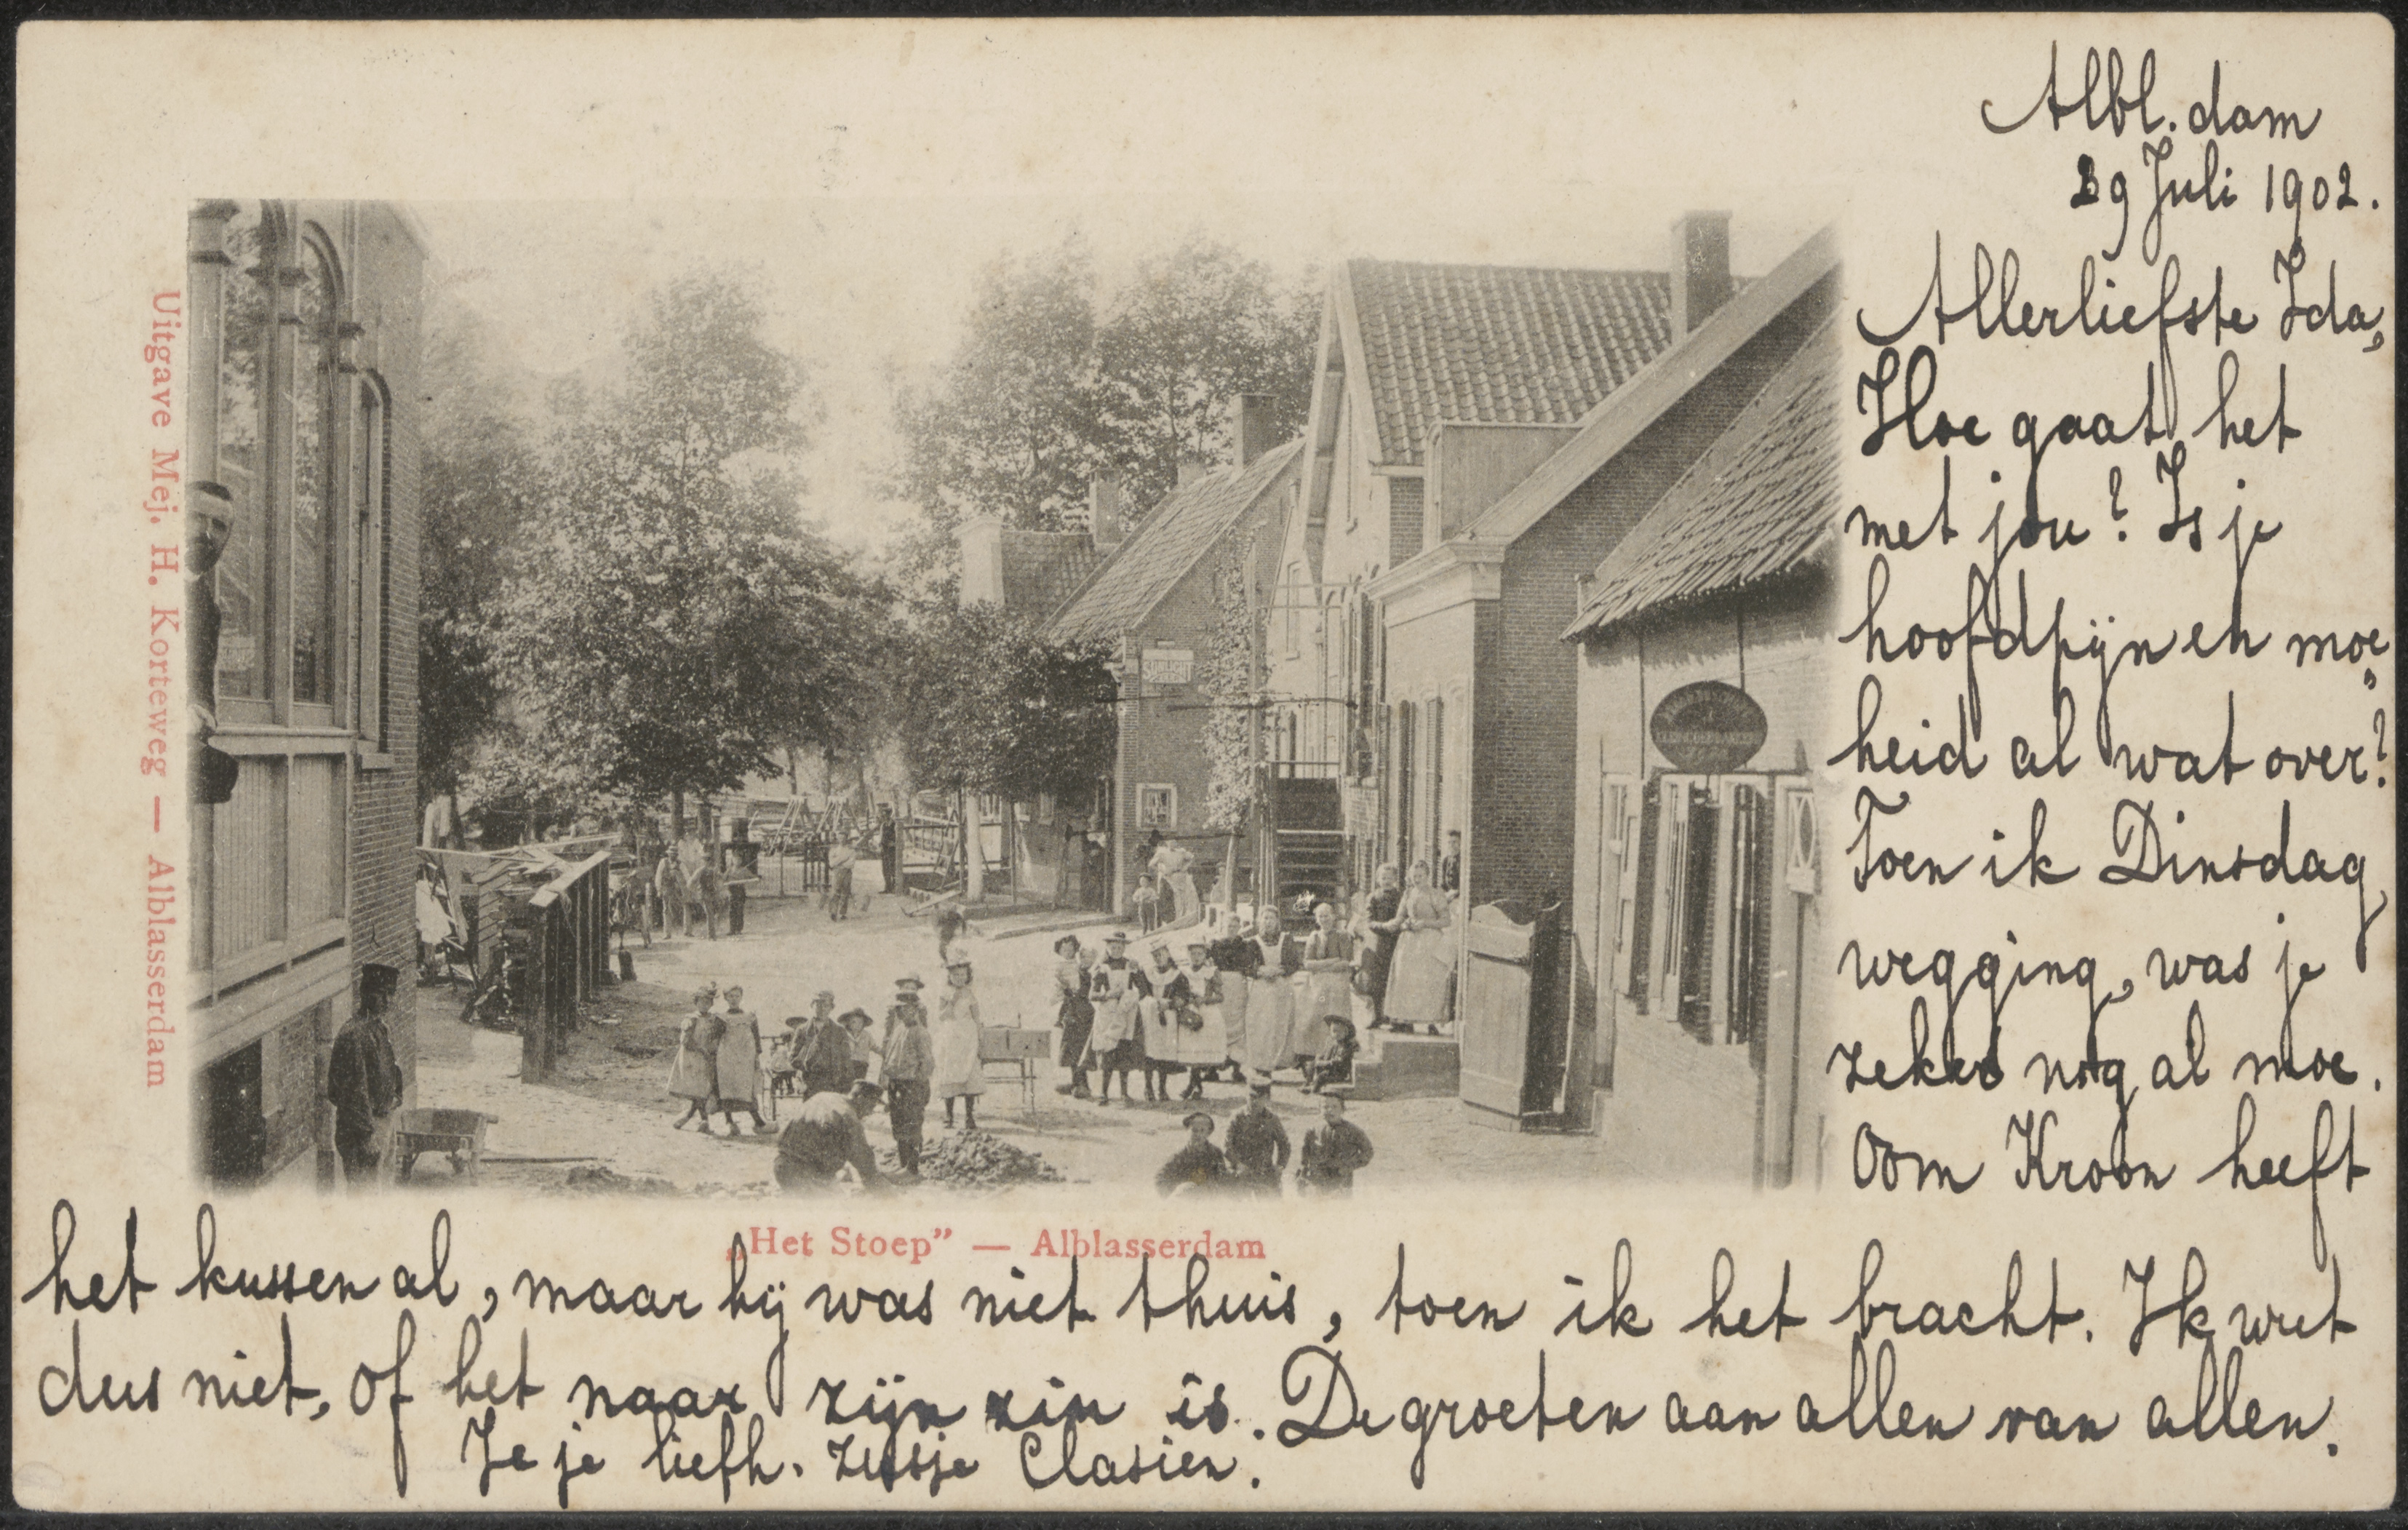 Albl. dam
29 Juli 1902.
Allerliefste Ida,
Hoe gaat het
met jou? Is je
hoofdpijn en moe„
heid al wat over?
Toen ik Dinsdag
wegging, was je
zeker nog al moe.
Oom Kroon heeft
het kussen al, maar hij was niet thuis, toen ik het bracht. Ik weet
dus niet, of het naar zijn zin is. De groeten aan allen van allen.
Je je liefh. zusje Clasien.
„Het Stoep” — Alblasserdam
Uitgave Mej. H. Korteweg — Alblasserdam